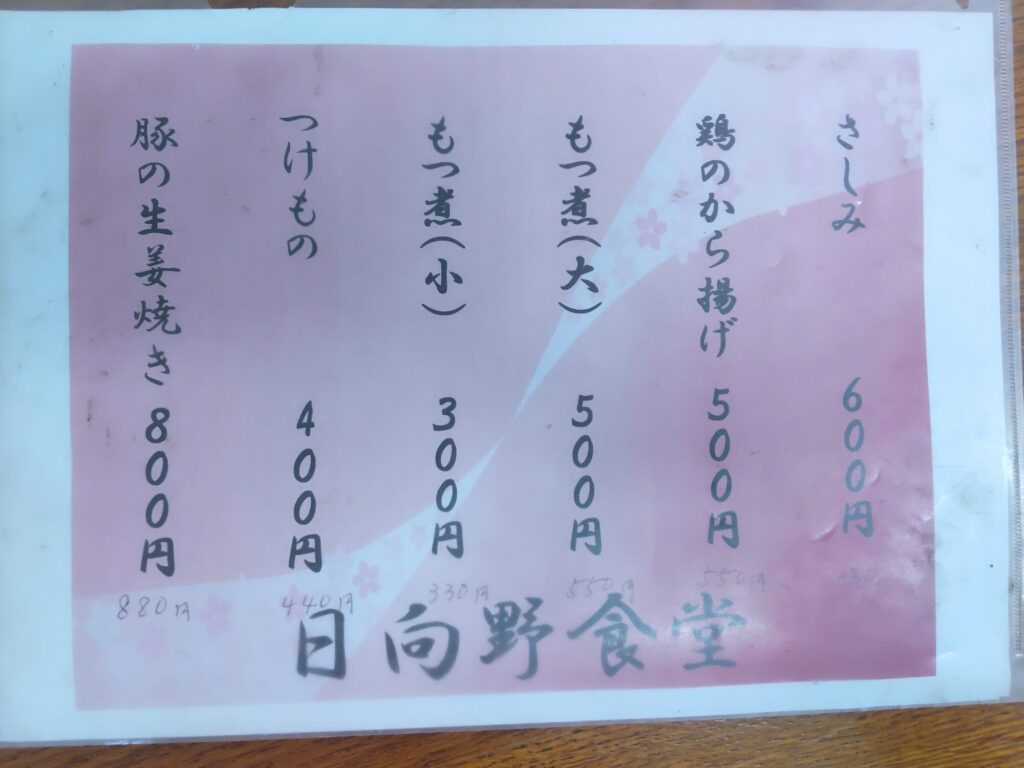 さしみ 600円
鶏のから揚げ 500円
550円
もつ煮(大) 500円
550円
もつ煮(小) 300円
330円
つけもの 400円
440円
豚の生姜焼き 800円
880円
日向野食堂